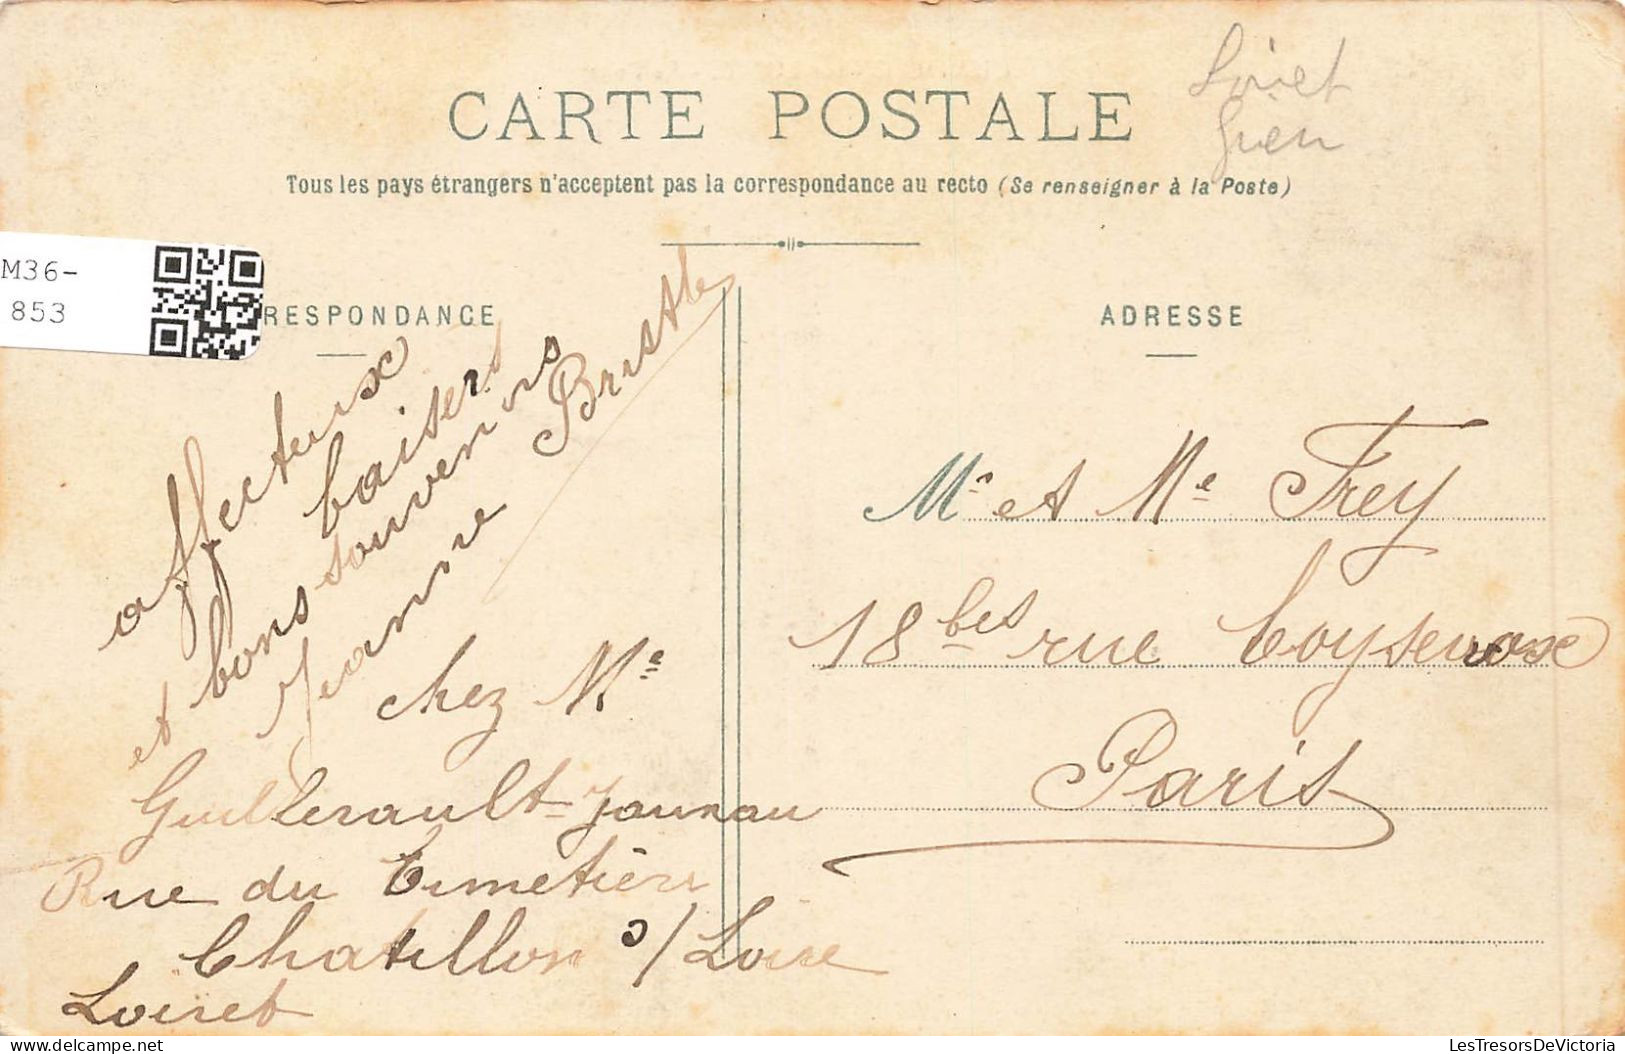 Loiret
Gien
CARTE POSTALE
Tous les pays étrangers n'acceptent pas la correspondance au recto (Se renseigner à la Poste)
M36-
853
RESPONDANCE
ADRESSE
affectueux
baisers
et bons souvenirs
Jeanne
chez Me
Guillerault-Jaunau
Rue du Cimetière
Chatillon s/Loire
Loiret
Mr et Me Frey
18 bis rue Coysevox
Paris
LesTresorsDeVictoria